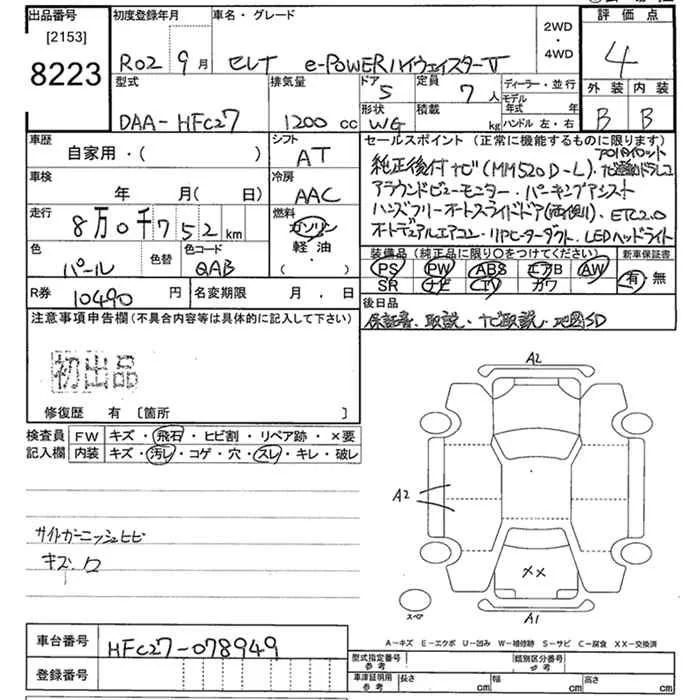 出品番号
[2153]
8223
初度登録年月
R02 9月
車名・グレード
セレナ e-POWERハイウェイスターV
2WD
・
4WD
評価点
4
型式
DAA-HFC27
排気量
1200 cc
ドア
5
形状
WG
定員
7人
積載
kg
ディーラー・並行
モデル年式 年
ハンドル 左・右
外装 内装
B B
車歴
自家用・( )
シフト
AT
車検
年 月(日)
冷房
AAC
走行
8万0千752km
燃料
ガソリン
軽油
( )
色
パール
色替
色コード
QAB
R券
10490円
名変期限 月.日
セールスポイント(正常に機能するものに限ります)
純正後付ナビ(MM520D-L).プロパイロット
ナビ連動ドラレコ
アラウンドビューモニター・パーキングアシスト
ハンズフリーオートスライドドア(両側).ETC2.0
オートデュアルエアコン・リアヒーターダクト.LEDヘッドライト
装備品(純正品に限り○をつけてください)
PS PW ABS エアB AW
SR ナビ TV カワ
新車保証書
有・無
後日品
保証書、取説・ナビ取説・地図SD
注意事項申告欄(不具合内容等は具体的に記入して下さい)
初出品
修復歴 有[箇所 ]
検査員
記入欄
FW キズ・飛石・ヒビ割・リペア跡・×要
内装 キズ・汚レ・コゲ・穴・スレ・キレ・破レ
サイドガーニッシュヒビ
キズ.凹
A2
A2
XX
スペア
A1
A-キズ E-エクボ U-凹み W-補修跡 S-サビ C-腐食 XX-交換済
車台番号
HFC27-078949
登録番号
型式指定番号
参考
類別区分番号
参考
車庫証明用
参考
長さ cm
幅 cm
高さ cm